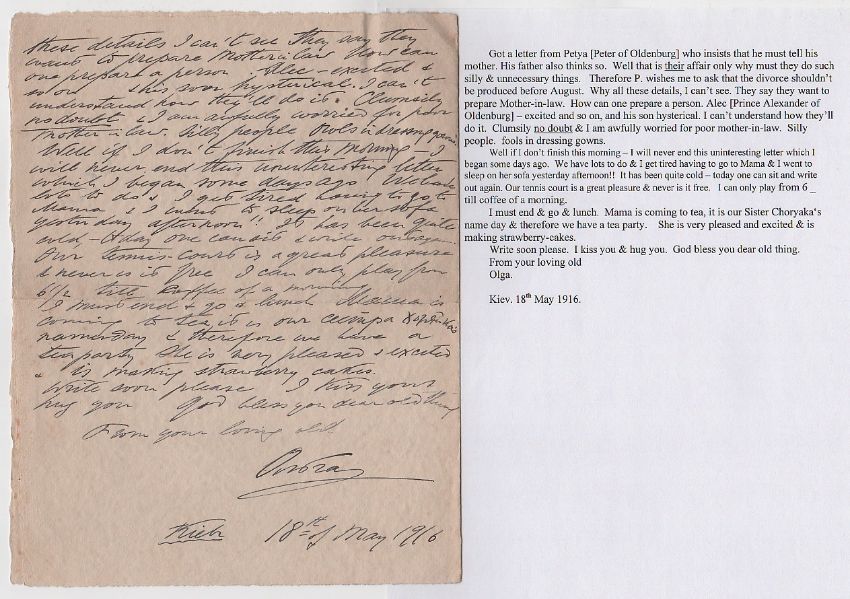 these details I can't see They say they
want to prepare Mother in law How can
one prepare a person Alec – excited &
so on his son hysterical. I can't
understand how they'll do it. Clumsily
no doubt & I am awfully worried for poor
mother in law. Silly people fools in dressing gowns
Well if I don't finish this morning – I
will never end this uninteresting letter
which I began some days ago We have
lots to do & I get tired having to go to
Mama & I went to sleep on her sofa
yesterday afternoon!! It has been quite
cold – today one can sit & write out again.
Our tennis-court is a great pleasure
& never is it free I can only play from
6 1/2 till coffee of a morning
I must end & go & lunch Mama is
coming to tea, it is our
namesday & therefore we have a
tea party She is very pleased & excited
& is making strawberry cakes.
Write soon please I kiss you &
hug you God bless you dear old thing
From your loving old
Ольга
Kiev 18th of May 1916
Got a letter from Petya [Peter of Oldenburg] who insists that he must tell his
mother. His father also thinks so. Well that is their affair only why must they do such
silly & unnecessary things. Therefore P. wishes me to ask that the divorce shouldn't
be produced before August. Why all these details, I can't see. They say they want to
prepare Mother-in-law. How can one prepare a person. Alec [Prince Alexander of
Oldenburg] – excited and so on, and his son hysterical. I can't understand how they'll
do it. Clumsily no doubt & I am awfully worried for poor mother-in-law. Silly
people. fools in dressing gowns.
Well if I don't finish this morning – I will never end this uninteresting letter which I
began some days ago. We have lots to do & I get tired having to go to Mama & I went to
sleep on her sofa yesterday afternoon!! It has been quite cold – today one can sit and write
out again. Our tennis court is a great pleasure & never is it free. I can only play from 6 _
till coffee of a morning.
I must end & go & lunch. Mama is coming to tea, it is our Sister Choryaka's
name day & therefore we have a tea party. She is very pleased and excited & is
making strawberry-cakes.
Write soon please. I kiss you & hug you. God bless you dear old thing.
From your loving old
Olga.
Kiev. 18th May 1916.